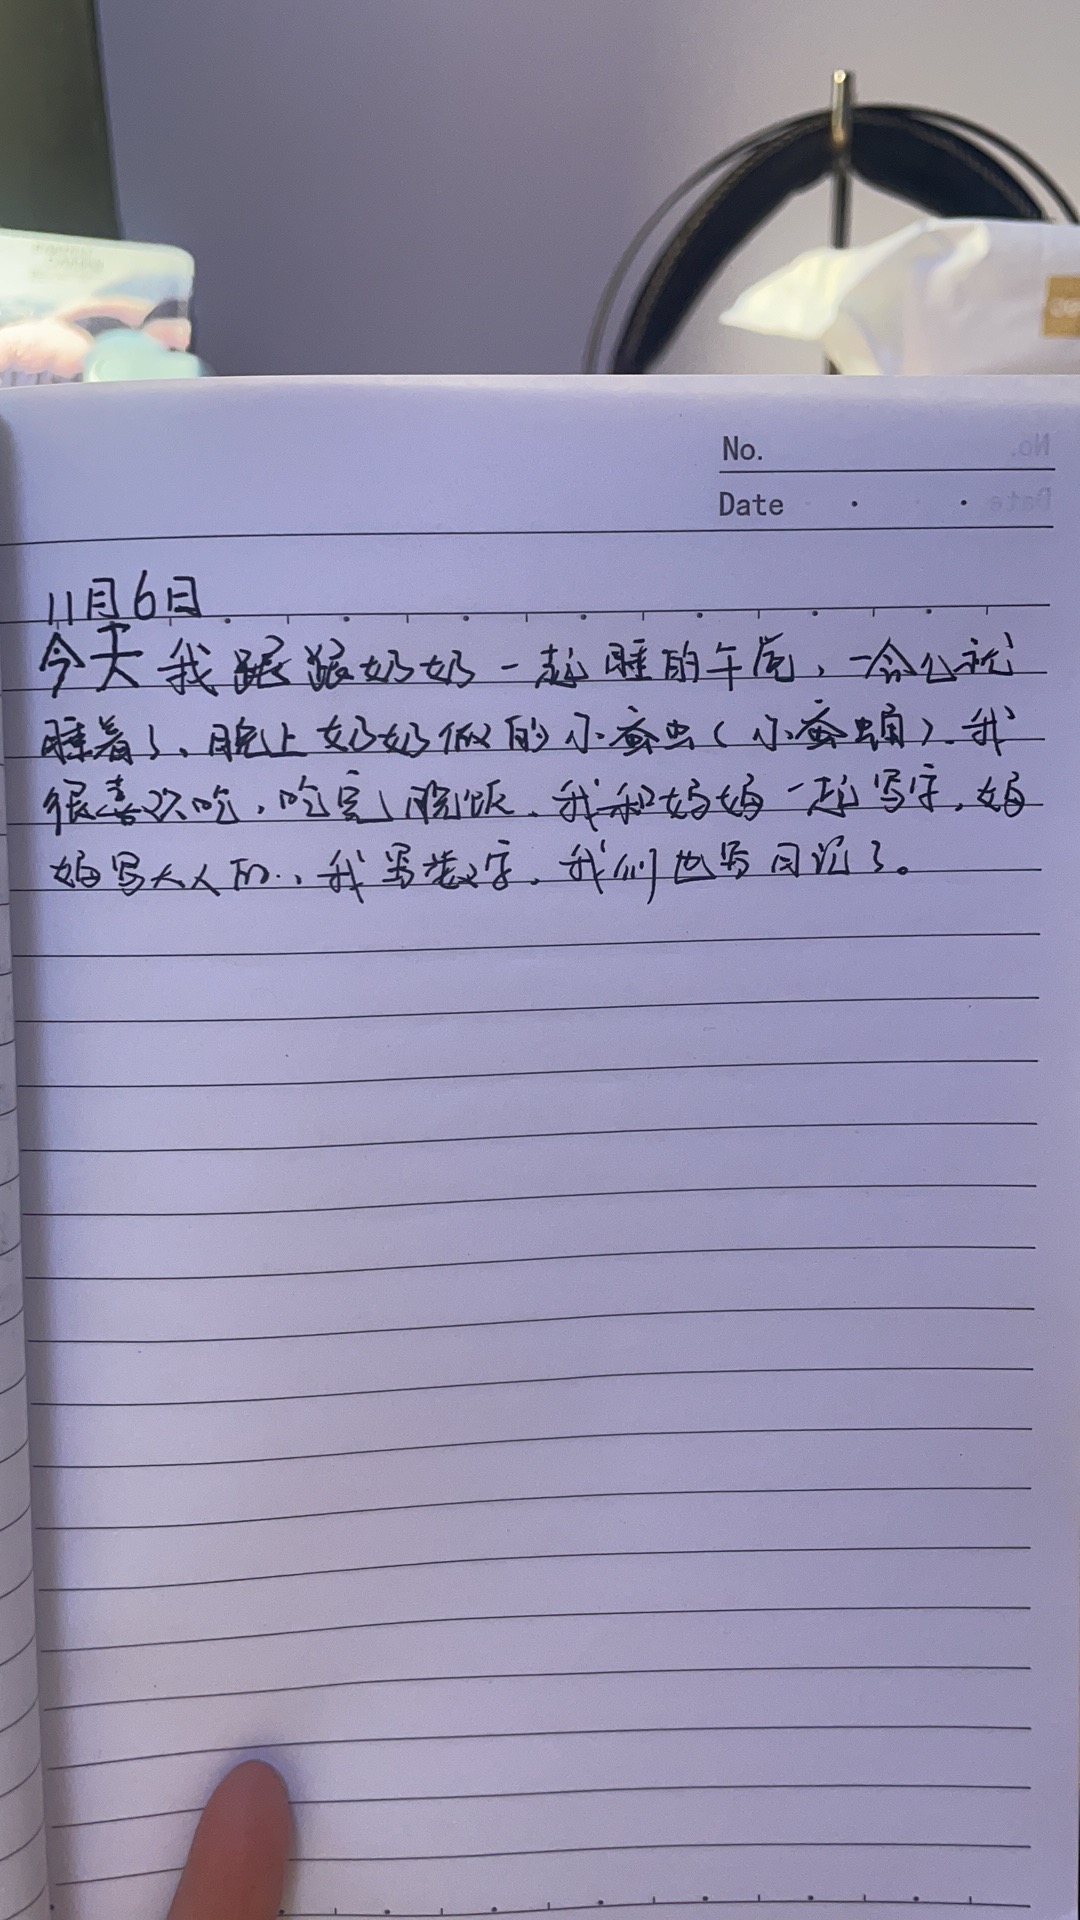 No.
Date
11月6日
今天我跟跟奶奶一起睡的午觉，一会儿就
睡着了、晚上奶奶做的小蚕虫（小蚕蛹）、我
很喜欢吃，吃完晚饭、我和妈妈一起写字，妈
妈写大人的、我写数字、我们也写日记了。